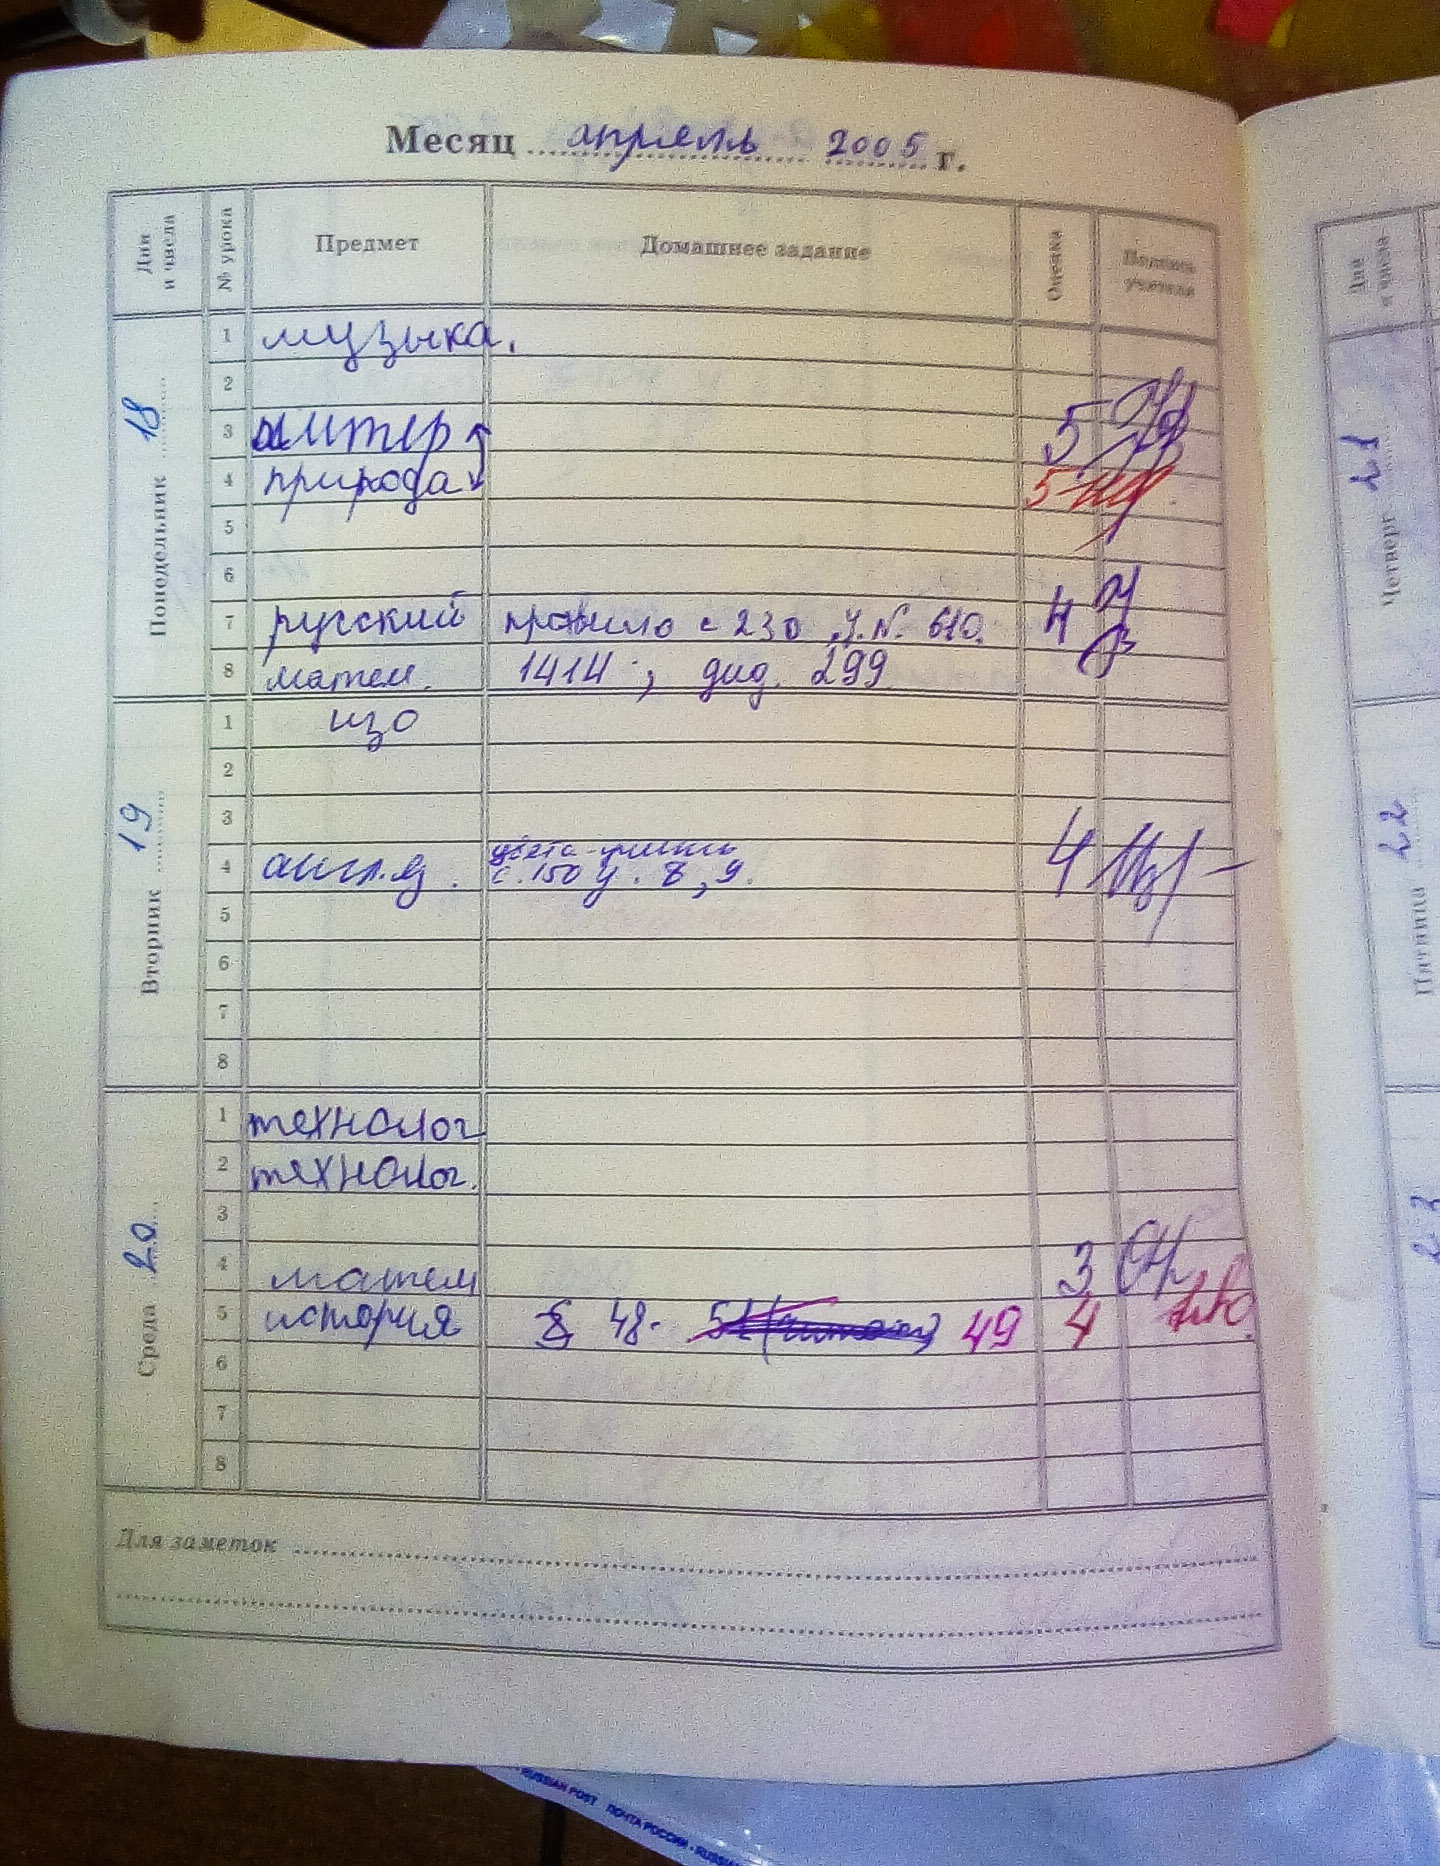 Месяц апрель 2005 г.
Дни и числа № урока Предмет Домашнее задание Оценка Подпись учителя
Понедельник 18
1 музыка.
2
3 литер 5
4 природа 5
5
6
7 русский правило с 230, У. N. 610. 4
8 матем. 1414; дид. 299
Вторник 19
1 изо
2
3
4 англ.яз. цвета-учить 4
с.150 у. 8, 9.
5
6
7
8
Среда 20
1 технолог
2 технолог.
3
4 матем 3
5 история § 48- 49 4
6
7
8
Для заметок
Дни и числа
Четверг 21
Пятница 22
23
RUSSIAN POST ПОЧТА РОССИИ - RUSSIAN